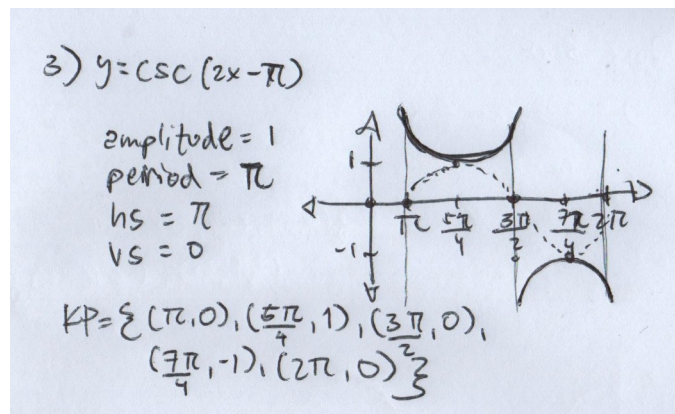 3) y=csc(2x-π)
amplitude = 1
period = π
hs = π
vs = 0
1
-1
π 5π/4 3π/2 7π/4 2π
KP={(π,0),(5π/4,1),(3π/2,0),
(7π/4,-1),(2π,0)}